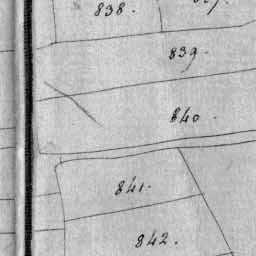 838.
839.
840.
841.
842.